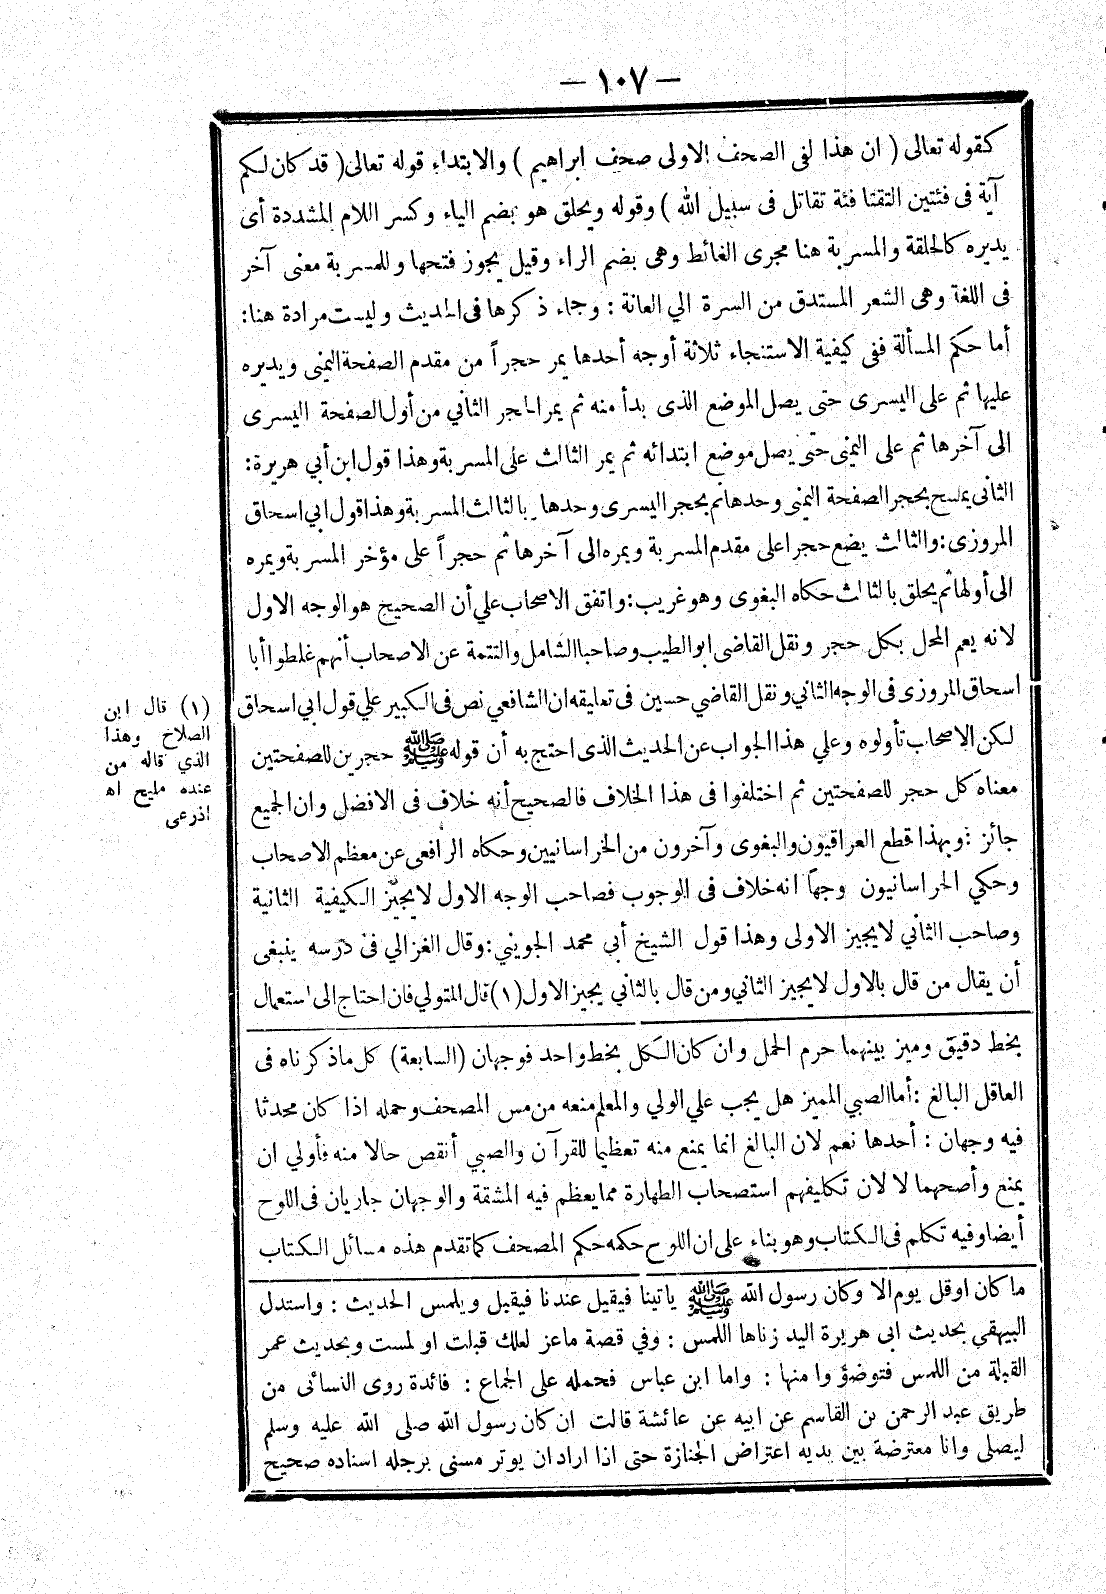 — ١٠٧ —
كقوله تعالى ( ان هذا لفى الصحف الاولى صحف ابراهيم ) والابتداء قوله تعالى( قد كان لكم
آية فى فئتين التقتا فئة تقاتل فى سبيل الله ) وقوله ويحلق هو بضم الياء وكسر اللام المشددة أى
يديره كالحلقة والمسربة هنا مجرى الغائط وهى بضم الراء وقيل يجوز فتحها وللمسربة معنى آخر
فى اللغة وهى الشعر المستدق من السرة الي العانة : وجاء ذكرها فى الحديث وليست مرادة هنا:
أما حكم المسألة ففى كيفية الاستنجاء ثلاثة أوجه أحدها يمر حجراً من مقدم الصفحة اليمنى ويديره
عليها ثم على اليسرى حتى يصل الموضع الذى بدأ منه ثم يمر الحجر الثاني من أول الصفحة اليسرى
الى آخرها ثم على اليمنى حتى يصل موضع ابتدائه ثم يمر الثالث على المسربة وهذا قول ابن أبي هريرة:
الثانى يمسح بحجر الصفحة اليمنى وحدها ثم بحجر اليسرى وحدها وبالثالث المسربة وهذا قول ابي اسحاق
المروزى:والثالث يضع حجرا على مقدم المسربة ويمره الى آخرها ثم حجراً على مؤخر المسربة ويمره
الى أولها ثم يحلق بالثالث حكاه البغوى وهو غريب:واتفق الاصحاب علي أن الصحيح هو الوجه الاول
لانه يعم المحل بكل حجر ونقل القاضى ابو الطيب وصاحبا الشامل والتتمة عن الاصحاب أنهم غلطوا أبا
اسحاق المروزى فى الوجه الثاني ونقل القاضي حسين فى تعليقه ان الشافعي نص فى الكبير علي قول ابي اسحاق
لكن الاصحاب تأولوه وعلي هذا الجواب عن الحديث الذى احتج به أن قوله ﷺ حجرين للصفحتين
معناه كل حجر للصفحتين ثم اختلفوا فى هذا الخلاف فالصحيح أنه خلاف فى الافضل وان الجميع
جائز :وبهذا قطع العراقيون والبغوى وآخرون من الخراسانيين وحكاه الرافعى عن معظم الاصحاب
وحكي الخراسانيون وجهاً انه خلاف فى الوجوب فصاحب الوجه الاول لا يجيز الكيفية الثانية
وصاحب الثاني لا يجيز الاولى وهذا قول الشيخ أبى محمد الجويني:وقال الغزالي فى درسه ينبغى
أن يقال من قال بالاول لا يجيز الثاني ومن قال بالثاني يجيز الاول(١)قال المتولي فان احتاج الى استعمال
(١) قال ابن
الصلاح وهذا
الذي قاله من
عنده مليح اه
اذرعى
بخط دقيق وميز بينهما حرم الحمل وان كان الكل بخط واحد فوجهان (السابعة) كل ما ذكرناه فى
العاقل البالغ :أما الصبي المميز هل يجب علي الولي والمعلم منعه من مس المصحف وحمله اذا كان محدثا
فيه وجهان : أحدها نعم لان البالغ انما يمنع منه تعظيما للقرآن والصبي أنقص حالا منه فأولي ان
يمنع وأصحهما لا لان تكليفهم استصحاب الطهارة مما يعظم فيه المشقة والوجهان جاريان فى اللوح
أيضا وفيه تكلم فى الكتاب وهو بناء على ان اللوح حكمه حكم المصحف كما تقدم هذه مسائل الكتاب
ما كان اوقل يوم الا وكان رسول الله ﷺ ياتينا فيقيل عندنا فيقبل ويلمس الحديث : واستدل
البيهقي بحديث ابى هريرة اليد زناها اللمس : وفي قصة ماعز لعلك قبلت او لمست وبحديث عمر
القبلة من اللمس فتوضؤوا منها : واما ابن عباس فحمله على الجماع : فائدة روى النسائى من
طريق عبد الرحمن بن القاسم عن ابيه عن عائشة قالت ان كان رسول الله صلى الله عليه وسلم
ليصلى وانا معترضة بين يديه اعتراض الجنازة حتى اذا اراد ان يوتر مسنى برجله اسناده صحيح